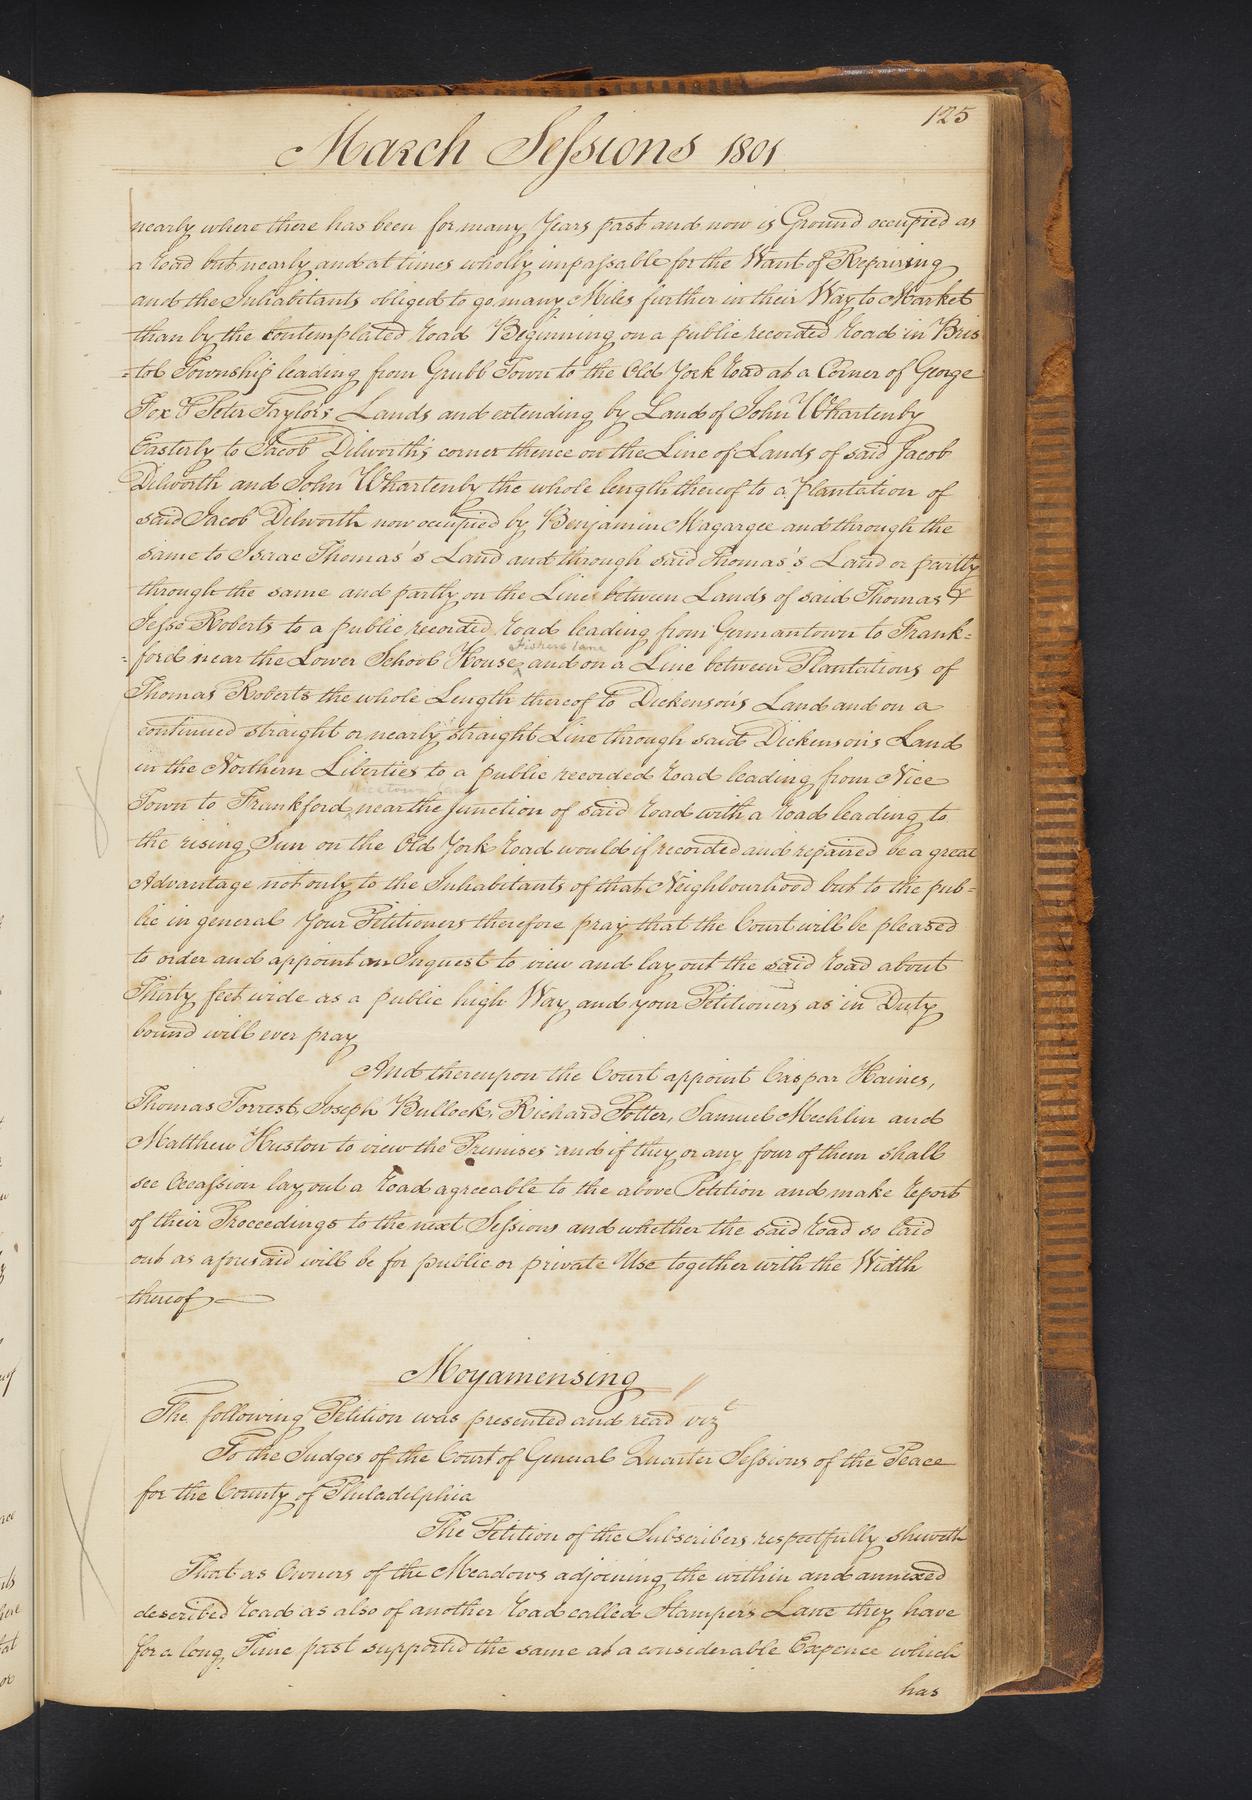 125
March Sessions 1801
nearly where there has been for many Years past and now is Ground occupied as
a road but nearly and at times wholly impassable for the Want of Repairing
and the Inhabitants obliged to go many Miles further in their Way to Market
than by the contemplated road Beginning on a public recorded road in Bris
=tol Township leading from Grubb Town to the Old York road at a Corner of George
Fox & Peter Taylors Lands and extending by Land of John Whartenby
Easterly to Jacob Dilworth's corner thence on the Line of Lands of said Jacob
Dilworth and John Whartenby the whole length thereof to a plantation of
said Jacob Dilworth now occupied by Benjamin Magargee and through the
same to Isaac Thomas's Land and through said Thomas's Land or partly
through the same and partly on the Line between Lands of said Thomas &
Jesse Roberts to a public recorded road leading from Germantown to Frank=
Fishers lane
=ford near the Lower School House ^ and on a Line between Plantations of
Thomas Roberts the whole Length thereof to Dickenson's Land and on a
continued straight or nearly straight Line through said Dickenson's Land
in the Northern Liberties to a public recorded road leading from Nice
Nicetown lane
Town to Frankford ^ near the junction of said road with a road leading to
the rising Sun on the Old York road would if recorded and repaired be a great
Advantage not only to the Inhabitants of that Neighbourhood but to the pub=
lic in general Your Petitioners therefore pray that the Court will be pleased
to order and appoint an Inquest to view and lay out the said road about
Thirty feet wide as a public high Way and your Petitioners as in Duty
bound will ever pray
And thereupon the Court appoint Caspar Haines,
Thomas Forrest, Joseph Bullock, Richard Potter, Samuel Mechlin and
Matthew Huston to view the Premises and if they or any four of them shall
see Occassion lay out a road agreeable to the above Petition and make report
of their Proceedings to the next Sessions and whether the said road so laid
out as aforesaid will be for public or private Use together with the Width
thereof
Moyamensing
The following Petition was presented and read vizt
To the Judges of the Court of General Quarter Sessions of the Peace
for the County of Philadelphia
The Petition of the Subscribers respectfully sheweth
That as Owners of the Meadows adjoining the within and annexed
described road as also of another road called Stamper's Lane they have
for a long Time past supported the same at a considerable Expence which
has